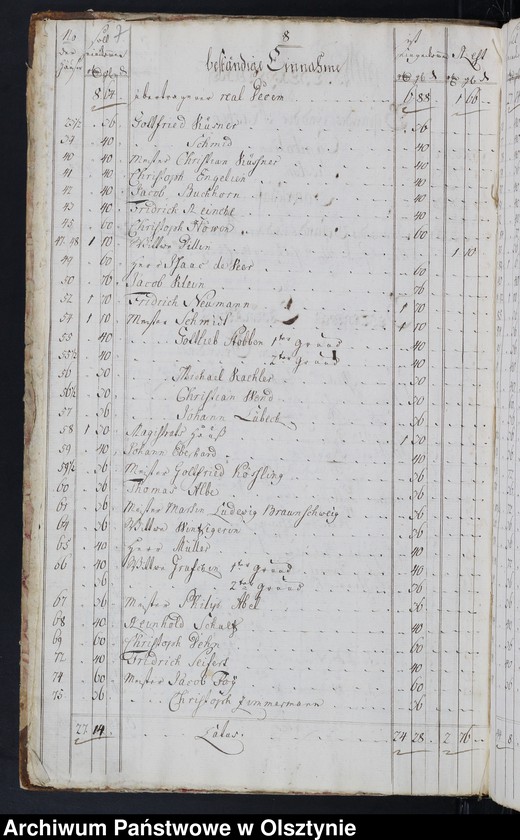 8
No der Häuser | Soll einkommen | beständige Einnahme | ist eingekommen | Rest
8 64 übertragener real Decim 6 88 1 66
56 Gottfried Küsner 56
39 40 Schmid 40
40 40 Meister Christian Küssner 40
41 40 Christoph Engelien 40
42 40 Jacob Buchhorn 40
43 40 Fridrich Reincke 40
45 60 Christoph 60
47. 48 1 10 Wittwe Dillen 1 10
49 60 Herr Isaac de Veer 60
50 76 Jacob Klein 76
52 1 70 Fridrich Neumann 1 70
54 1 10 Meister Schmidt 1 10
55 40 Gottlieb Stobbon 1ter Grund 40
55½ 40 2ter Grund 40
56 50 Michael Kackler 50
56½ 50 Christian Wend 50
57 56 Johann Lübeck 56
58 1 20 Magistrats Hauß 1 20
59 40 Johann Eberhard 40
59½ 56 Meister Gottfried Kössling 56
60 56 Thomas Albe 56
61 56 Meister Martin Ludewig Braunschweig 56
64 56 Wittwe Wintzigerin 56
65 40 Herr Müller 40
66 40 Wittwe 1ter Grund 40
56 2ter Grund 56
67 56 Meister Philip Abel 56
68 40 Reinhold Schultz 40
69 60 Christoph Dehn 60
72 40 Fridrich Seifert 40
74 60 Meister Jacob Foÿ 60
75 56 Christoph Zimmermann 56
27 14 Latus. 24 28 2 76
Archiwum Państwowe w Olsztynie